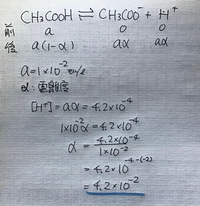 CH₃COOH ⇌ CH₃COO⁻ + H⁺
前 a 0 0
後 a(1-α) aα aα
a=1×10⁻² mol/l
α:電離度
[H⁺]=aα=4,2×10⁻⁴
1×10⁻²α=4,2×10⁻⁴
α = 4,2×10⁻⁴ / 1×10⁻²
= 4,2×10⁻⁴⁻⁽⁻²⁾
= 4,2×10⁻²